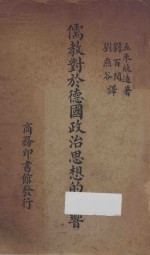 五來欣造著
劉百閔
劉燕谷 譯
儒教對於德國政治思想的響
商務印書館發行